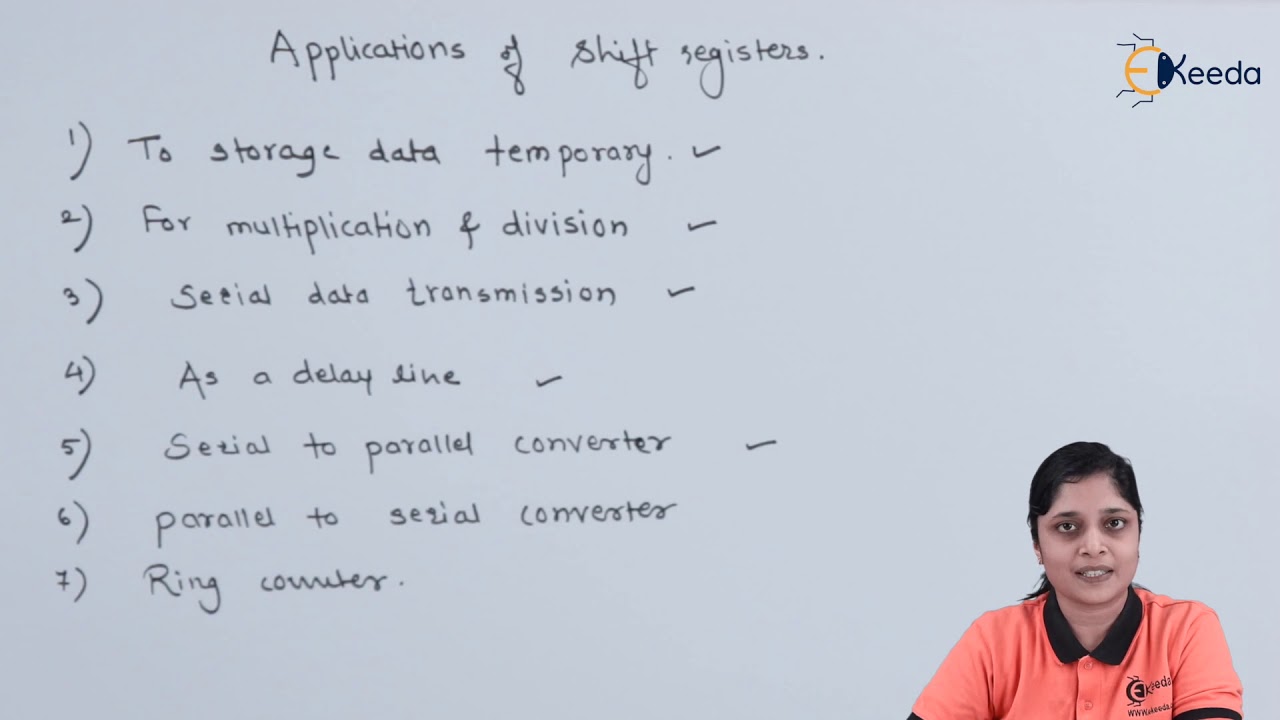 Applications of shift registers.
EKeeda
1) To storage data temporary. ✓
2) For multiplication & division ✓
3) Serial data transmission ✓
4) As a delay line ✓
5) Serial to parallel converter ✓
6) parallel to serial converter
7) Ring counter.
EKeeda